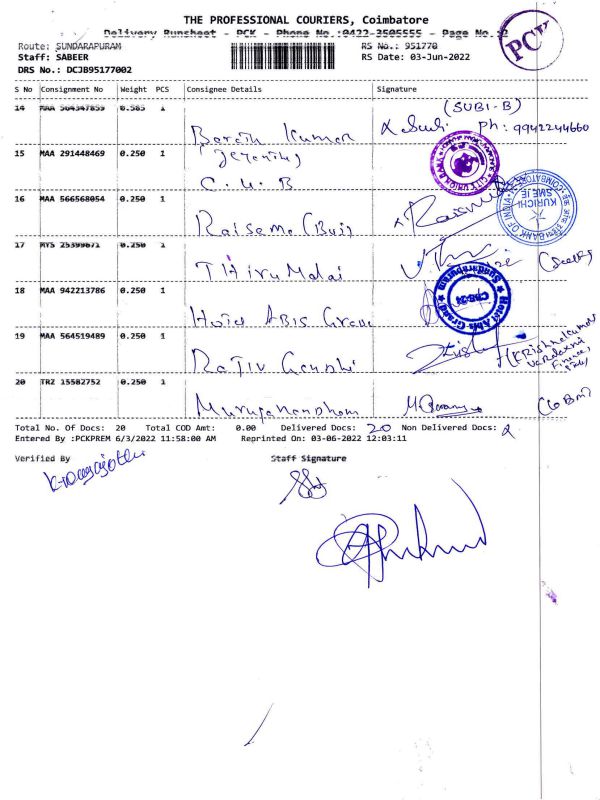 THE PROFESSIONAL COURIERS, Coimbatore
Delivery Runsheet - PCK - Phone No.:0422-3505555 - Page No.:2
PCK
Route: SUNDARAPURAM
RS No.: 951770
Staff: SABEER
RS Date: 03-Jun-2022
DRS No.: DCJB95177002
S No Consignment No Weight PCS Consignee Details Signature
14 MAA 564347859 0.585 1
(SUBI-B)
Ph: 9942244660
15 MAA 291448469 0.250 1
C.U.B
CITY UNION BANK
16 MAA 566568054 0.250 1
BANK OF INDIA
KURICHI
SME IE
COIMBATORE
17 MYS 25399671 0.250 1
THiru Malai
18 MAA 942213786 0.250 1
Hotel ABIS Grand
Hotel Abis Grand
CBE-24
Sundarapuram
19 MAA 564519489 0.250 1
Rajiv Gandhi
Finance
20 TRZ 15582752 0.250 1
Muruganandham
Total No. Of Docs: 20 Total COD Amt: 0.00 Delivered Docs: 20 Non Delivered Docs: 2
Entered By :PCKPREM 6/3/2022 11:58:00 AM Reprinted On: 03-06-2022 12:03:11
Verified By
Staff Signature